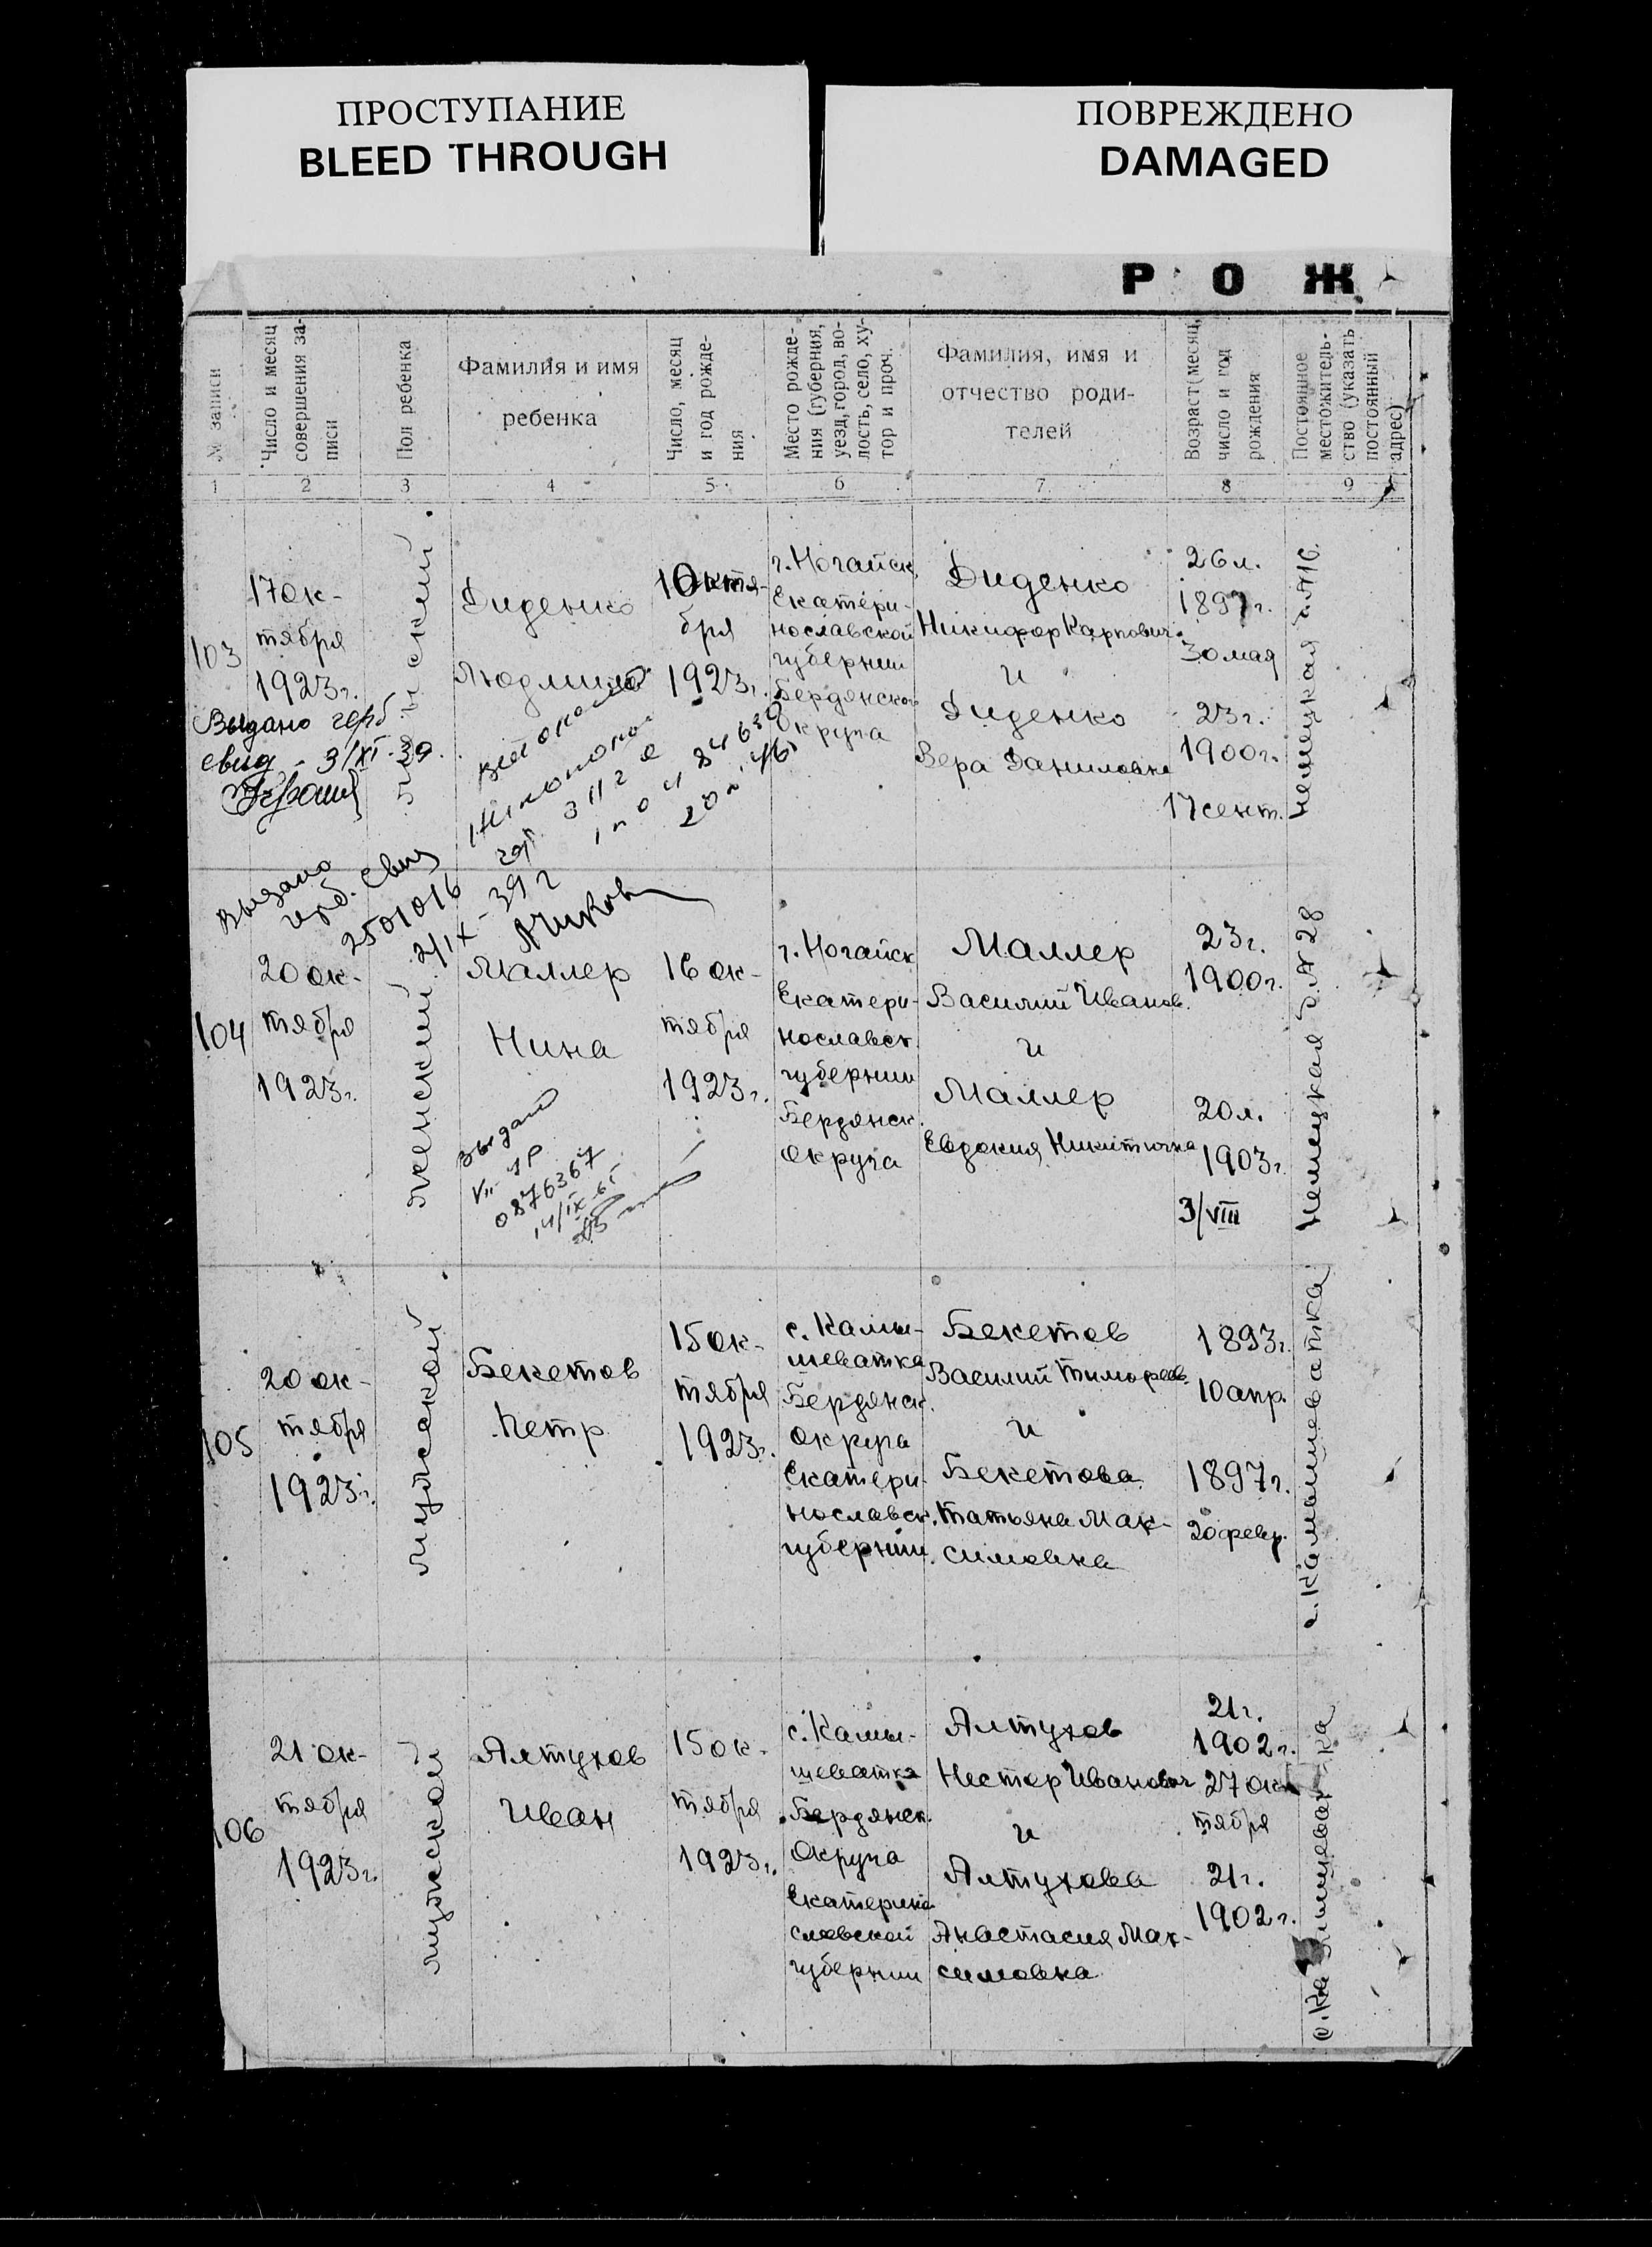 ПРОСТУПАНИЕ
BLEED THROUGH
ПОВРЕЖДЕНО
DAMAGED
Р О Ж
№ записи
Число и месяц
совершения за-
писи
Пол ребенка
Фамилия и имя
ребенка
Число, месяц
и год рожде-
ния
Место рожде-
ния (губерния,
уезд, город, во-
лость, село, ху-
тор и проч.
Фамилия, имя и
отчество роди-
телей
Возраст (месяц,
число и год
рождения
Постоянное
местожитель-
ство (указать
постоянный
адрес)
1 2 3 4 5 6 7 8 9
103
17 ок-
тября
1923г.
Выдано герб
свид - 3/XI-39.
Диденко
Людмила
1 Октя-
бря
1923г.
г. Ногайск
Екатери-
нославской
губернии
Бердянского
округа
Диденко
Никифор Карпович
и
Диденко
Вера Даниловна
26 л.
1897г.
30 мая
23г.
1900г.
17 сент.
Немецкая ч. №16.
Выдано
герб. свид
2501016
2/IX-39г
104
20 ок-
тября
1923г.
женский
Маллер
Нина
16 ок-
тября
1923г.
г. Ногайск
Екатери-
нославск.
губернии
Бердянск.
округа
Маллер
Василий Иванов.
и
Маллер
Евдокия Никитична
23г.
1900г.
20л.
1903г.
3/VIII
Немецкая ч. №28
0876367
105
20 ок-
тября
1923г.
мужской
Бекетов
Петр
15 ок-
тября
1923г.
с. Камы-
шеватка
Бердянск.
округа
Екатери-
нославск.
губернии.
Бекетов
Василий Тимофеев.
и
Бекетова
Татьяна Мак-
симовна
1893г.
10 апр.
1897г.
20 февр.
с. Камышеватка
106
21 ок-
тября
1923г.
мужской
Алтухов
Иван
15 ок-
тября
1923г.
с. Камы-
шеватка
Бердянск.
Округа
Екатерино-
славской
губернии
Алтухов
Нестер Иванович
и
Алтухова
Анастасия Мак-
симовна
21г.
1902г.
27 ок
тября
21г.
1902г.